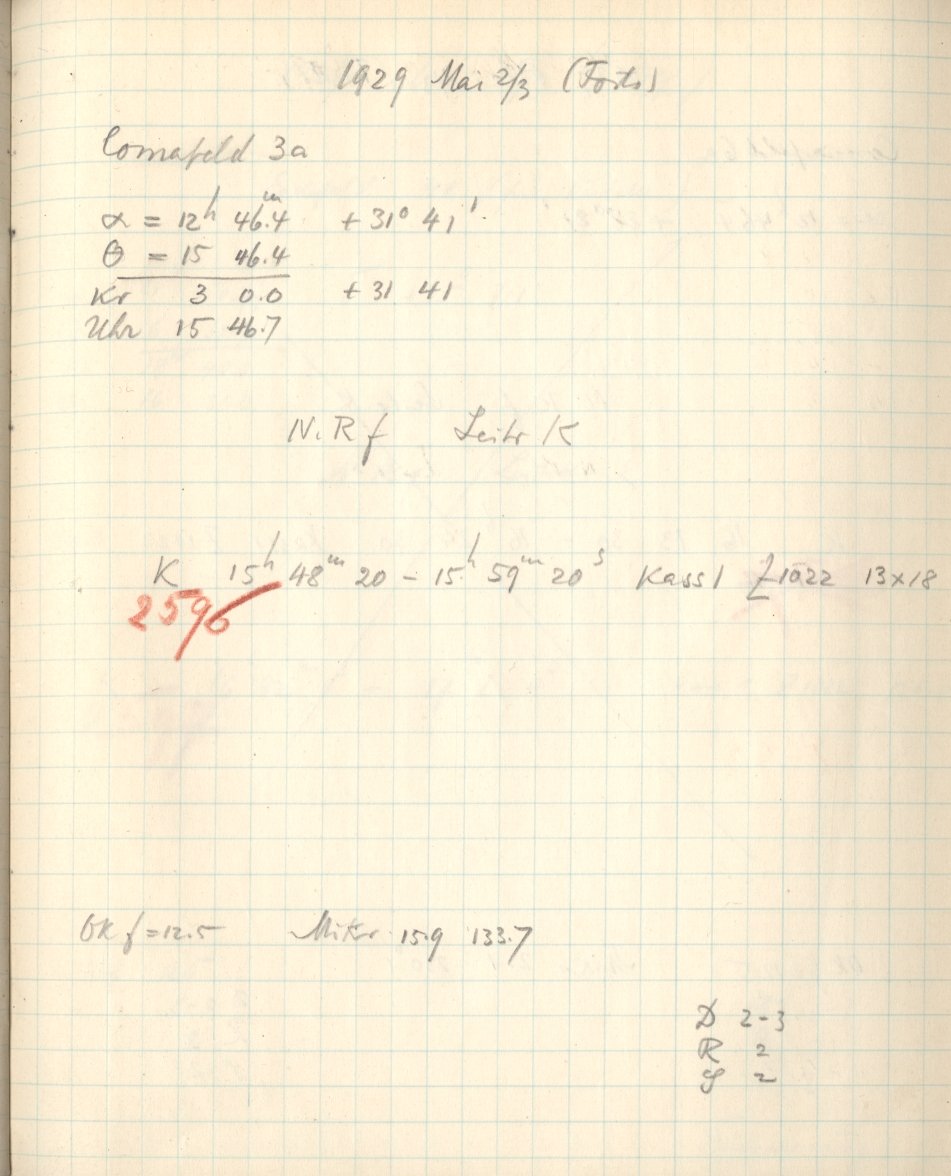 1929 Mai 2/3 (Forts)
Comafeld 3a
α = 12h 46.4m + 31° 41'
θ = 15 46.4
Kr 3 0.0 + 31 41
Uhr 15 46.7
N.R f Leitr K
K 15h 48m 20 – 15h 59m 20s Kass 1 Z 1022 13x18
2596
OK f = 12.5 Mikr 15.9 133.7
D 2-3
R 2
S 2